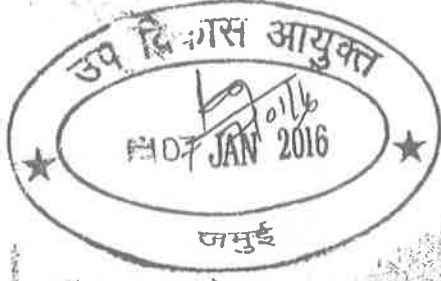 उप विकास आयुक्त
07 JAN 2016
जमुई